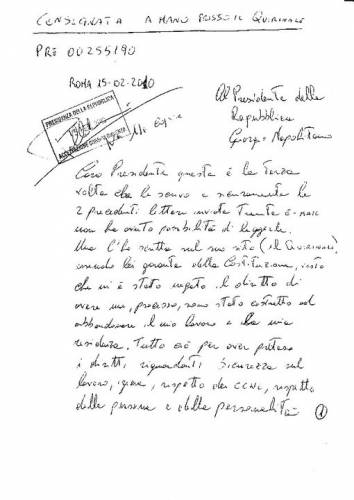 CONSEGNATA A MANO PRESSO IL QUIRINALE
PRE 00255190
ROMA 15-02-2010
PRESIDENZA DELLA REPUBBLICA
Al Presidente della
Repubblica
Giorgio Napolitano
Caro Presidente questa è la terza
volta che le scrivo e sicuramente le
2 precedenti lettere inviate Tramite E-MAIL
non ha avuto possibilità di leggerle.
Una l'ho scritta sul suo sito (il QUIRINALE)
essendo lei garante della Costituzione, visto
che mi è stato negato il diritto di
avere un processo, sono stato costretto ad
abbandonare il mio lavoro e la mia
residenza. Tutto ciò per aver preteso
i diritti riguardanti Sicurezza sul
lavoro, igiene, rispetto dei CCNL, rispetto
della persona e della personalità
1